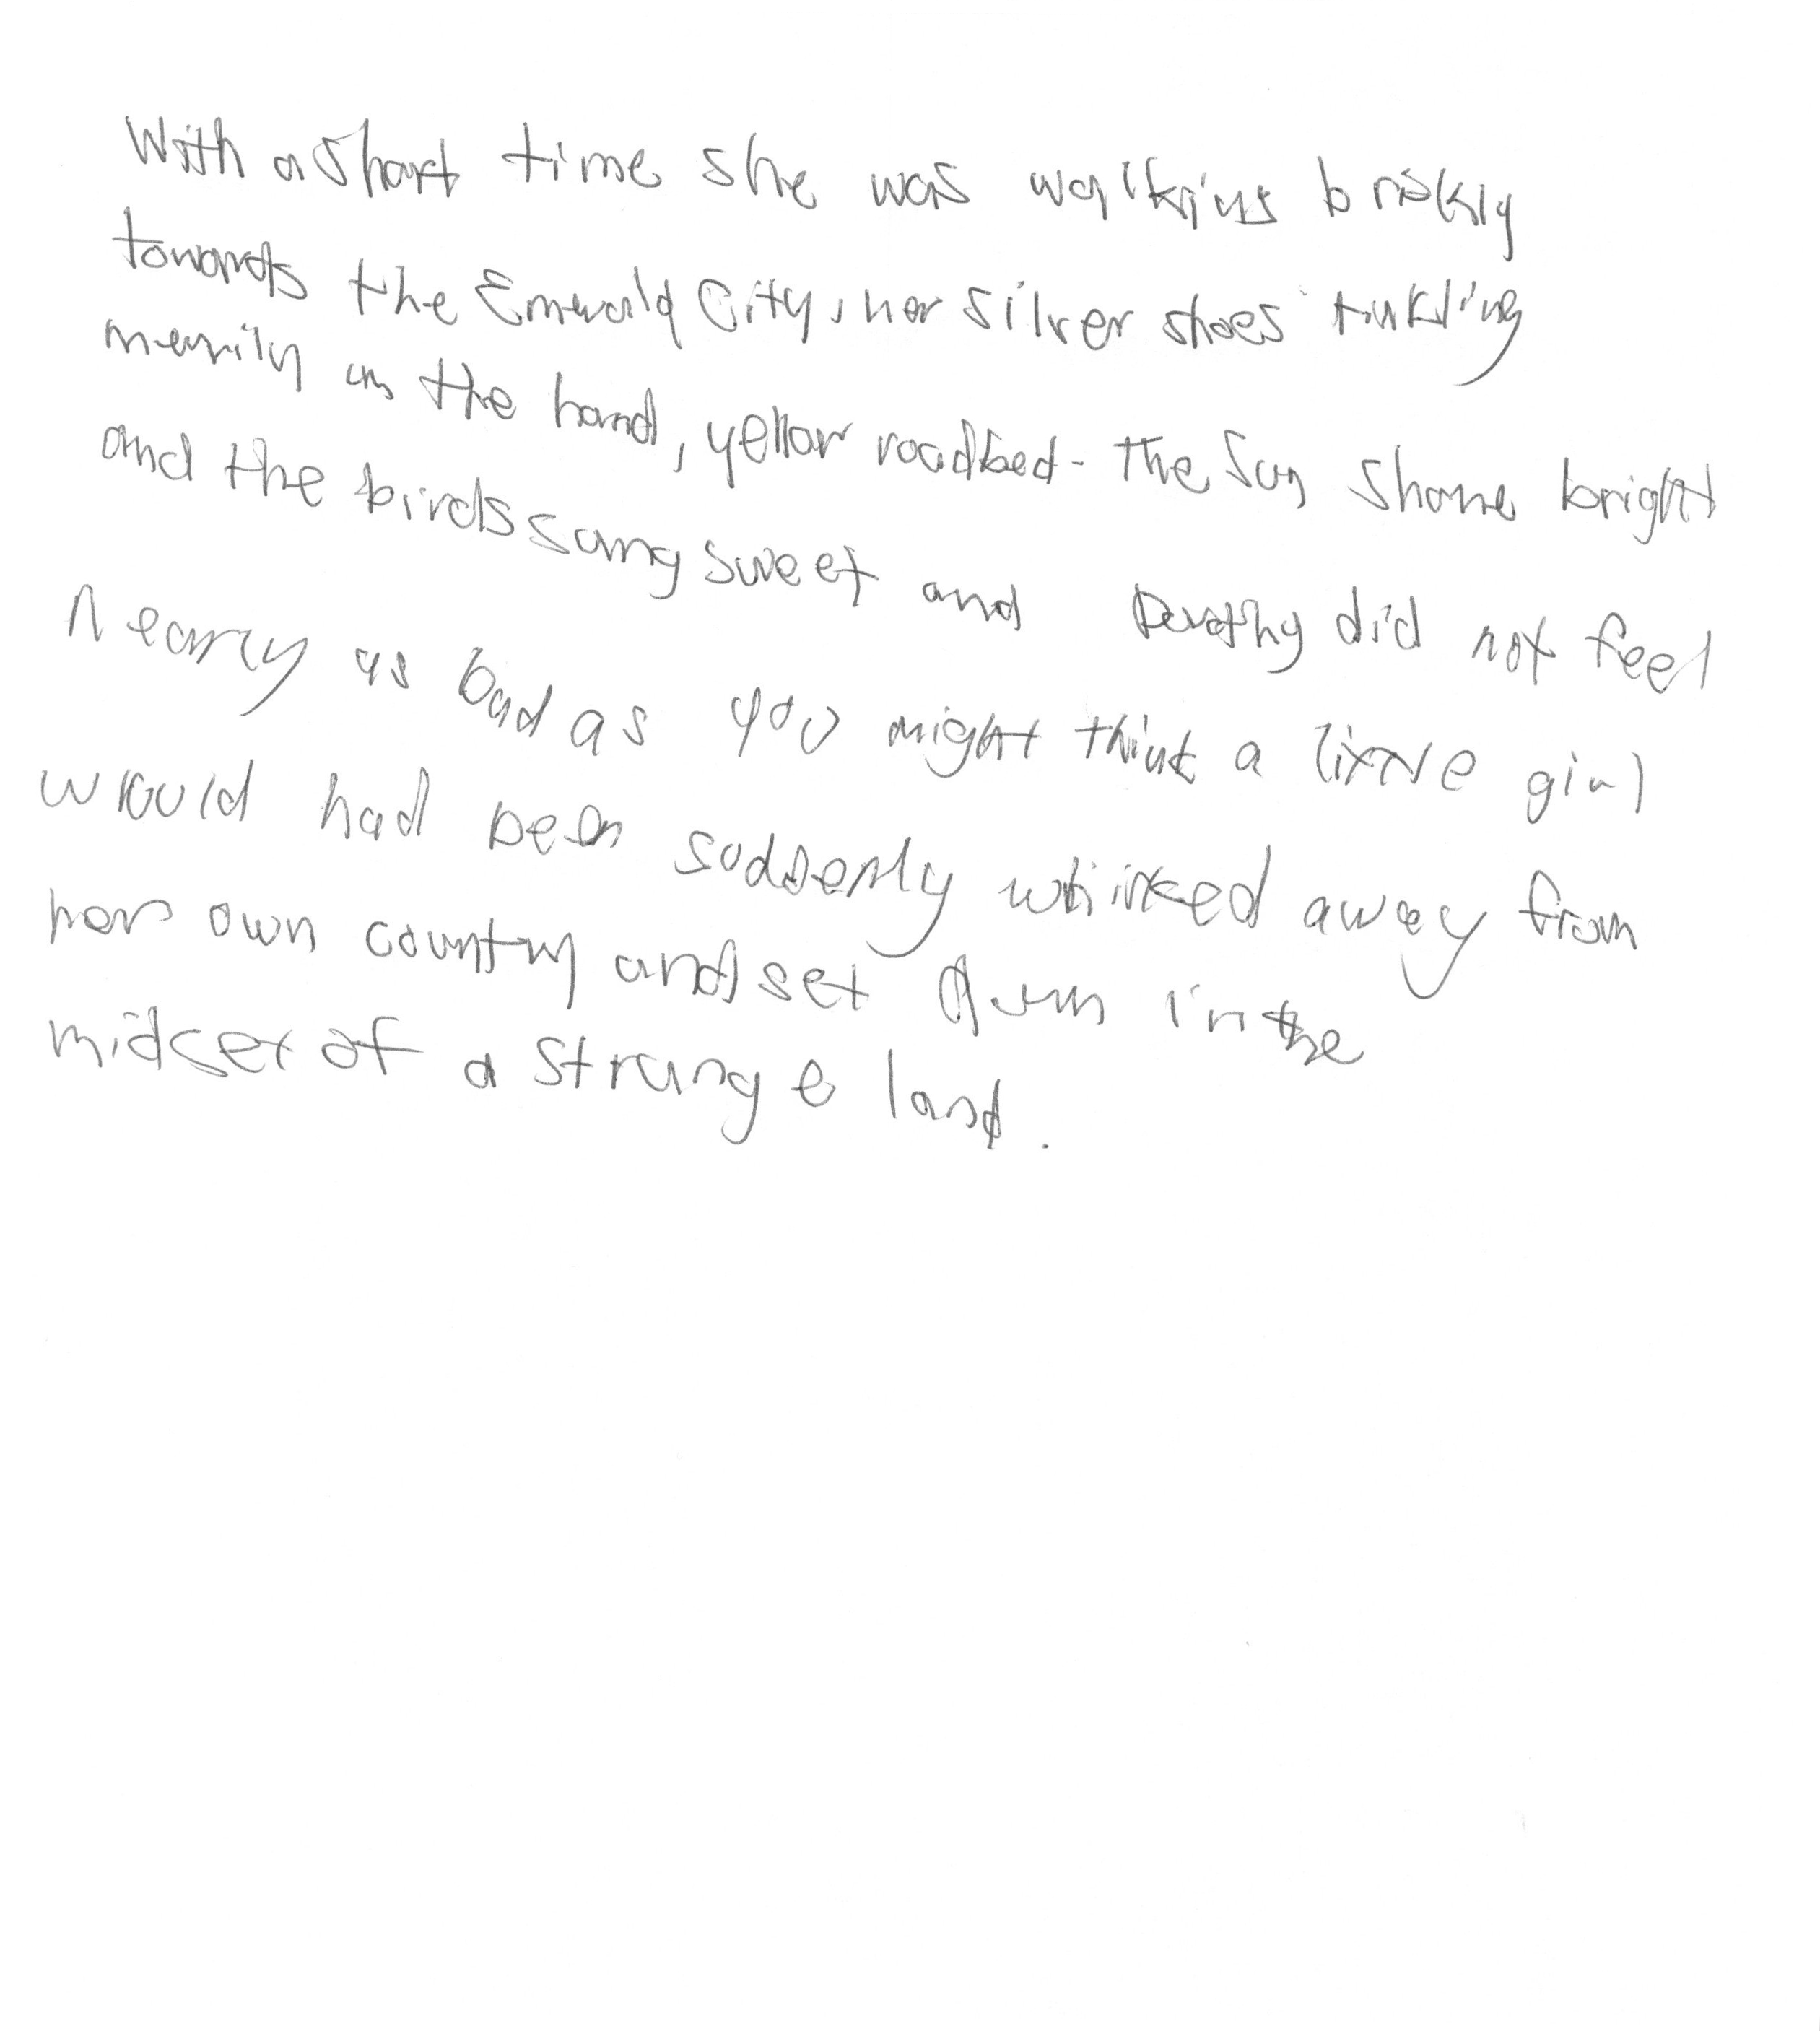 With a short time she was walking briskly
towards the Emerald City, her silver shoes tinkling
merrily on the hard, yellow roadbed. The sun shone bright
and the birds sang sweet and Dorothy did not feel
nearly as bad as you might think a little girl
would had been suddenly whisked away from
her own country and set down in the
midset of a strange land.